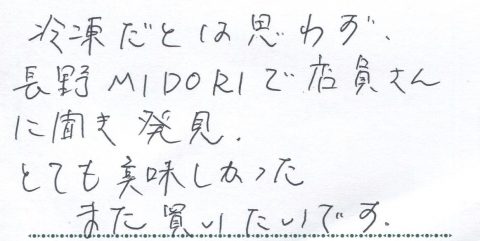 冷凍だとは思わず、
長野MIDORIで店員さん
に聞き発見.
とても美味しかった
また買いたいです.